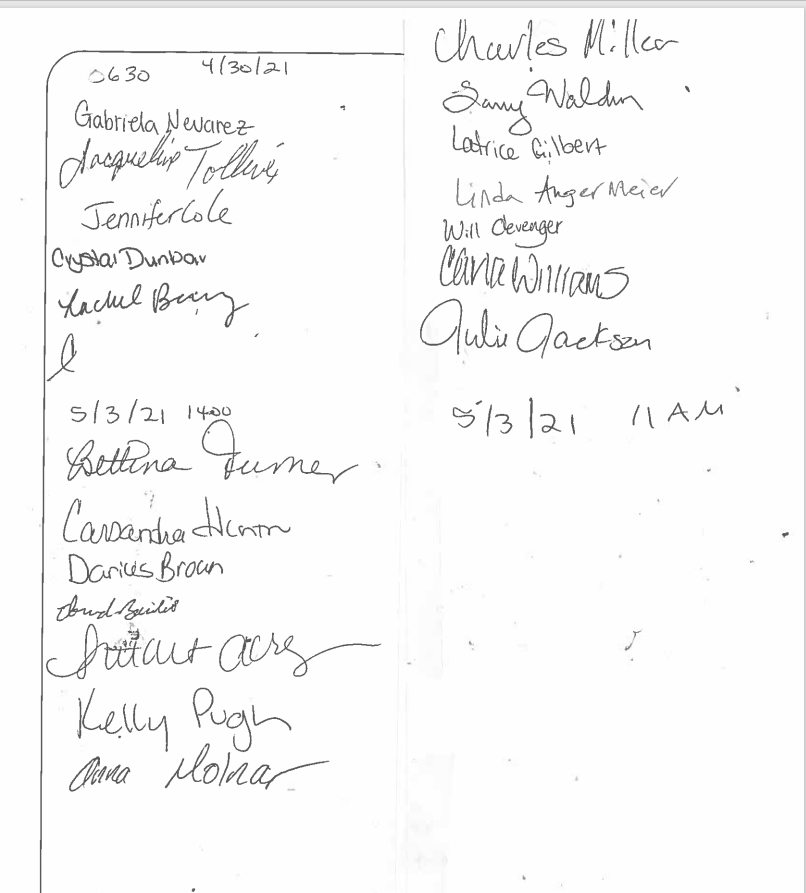 0630 4/30/21
Gabriela Nevarez
Jacqueline
Jennifer Cole
Crystal Dunbar
Rachel
5/3/21 1400
Bettina Turner
Cassandra
Darius Brown
Kelly Pugh
Anna Molnar
Charles Miller
Waldin
Latrice Gilbert
Linda AngerMeier
Will Clevenger
Carla Williams
Julie Jackson
5/3/21 11 AM